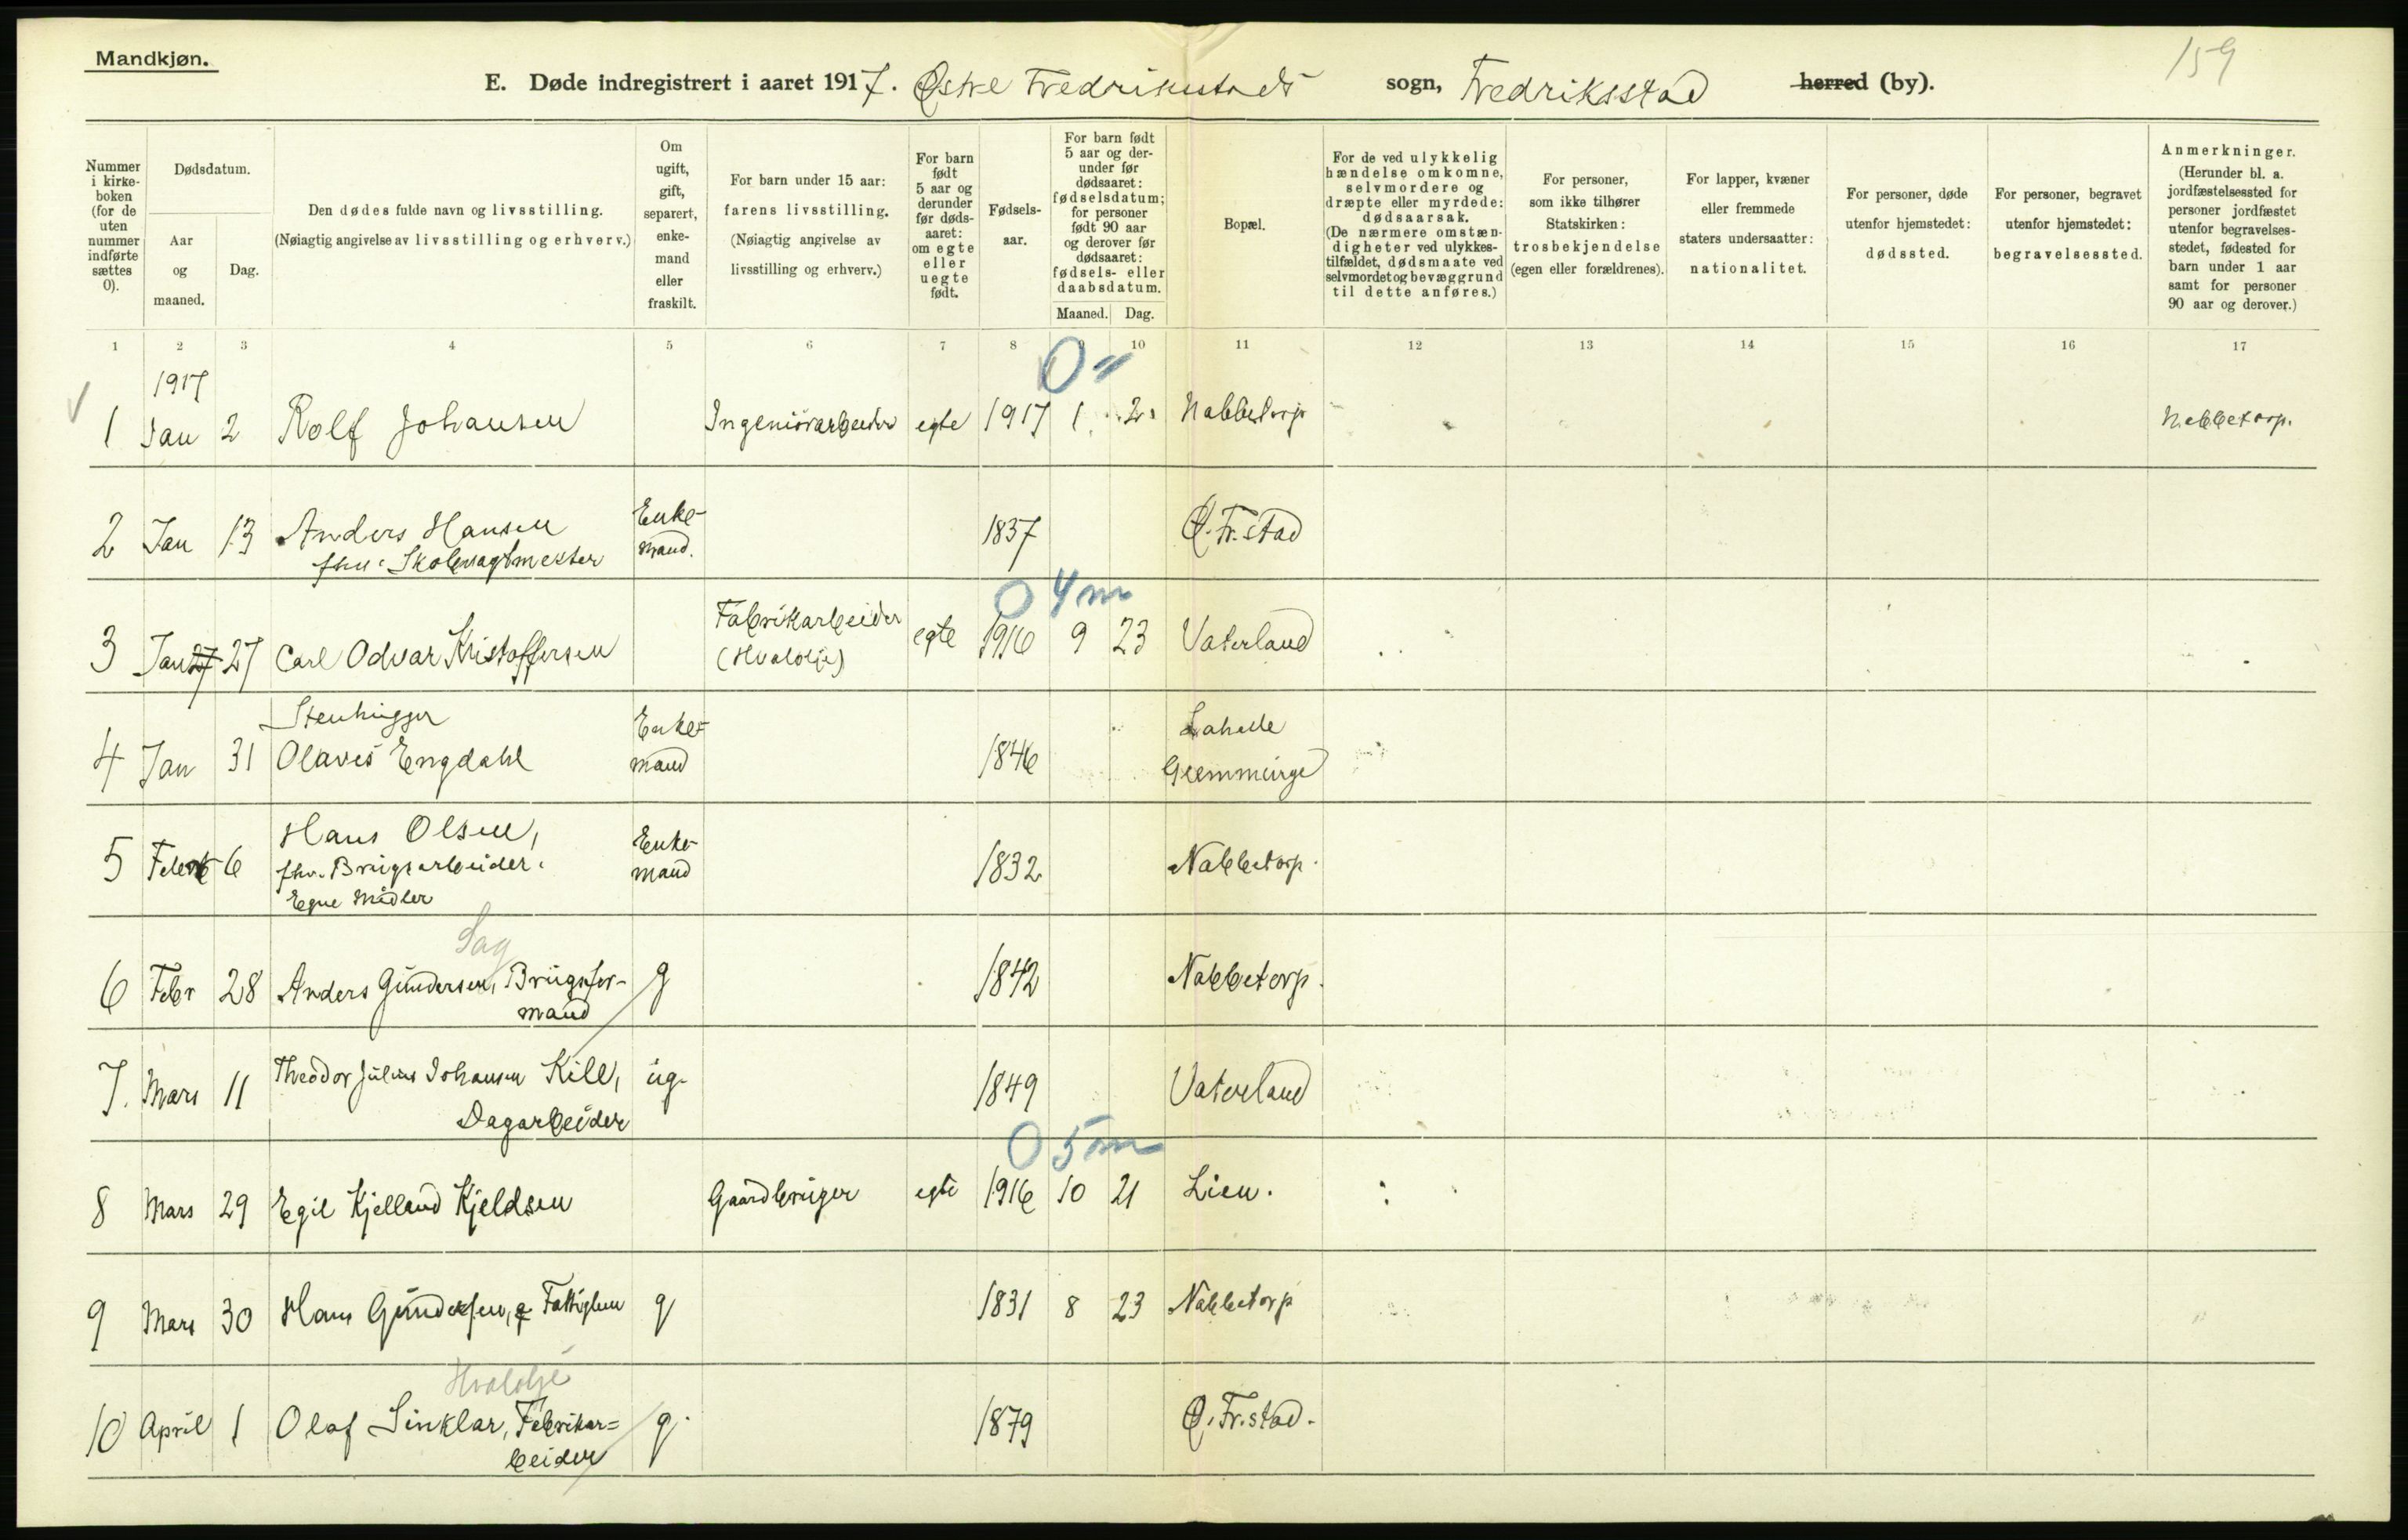 Mandkjøn.
159
E. Døde indregistrert i aaret 1917. Østre Fredrikstads sogn, Fredriksstad herred (by).
Nummer i kirke-boken (for de uten nummer indførte sættes 0).
Dødsdatum.
Aar og maaned.
Dag.
Den dødes fulde navn og livsstilling.
(Nøiagtig angivelse av livsstilling og erhverv.)
Om ugift, gift, separert, enke-mand eller fraskilt.
For barn under 15 aar: farens livsstilling. (Nøiagtig angivelse av livsstilling og erhverv.)
For barn født 5 aar og derunder før døds-aaret: om egte eller uegte født.
Fødsels-aar.
For barn født 5 aar og der-under før dødsaaret: fødselsdatum; for personer født 90 aar og derover før dødsaaret: fødsels- eller daabsdatum.
Maaned. Dag.
Bopæl.
For de ved ulykkelig hændelse omkomne, selvmordere og dræpte eller myrdede: dødsaarsak. (De nærmere omstæn-digheter ved ulykkes-tilfældet, dødsmaate ved selvmordet og bevæggrund til dette anføres.)
For personer, som ikke tilhører Statskirken: trosbekjendelse (egen eller forældrenes).
For lapper, kvæner eller fremmede staters undersaatter: nationalitet.
For personer, døde utenfor hjemstedet: dødssted.
For personer, begravet utenfor hjemstedet: begravelsessted.
Anmerkninger. (Herunder bl. a. jordfæstelsessted for personer jordfæstet utenfor begravelses-stedet, fødested for barn under 1 aar samt for personer 90 aar og derover.)
1 2 3 4 5 6 7 8 9 10 11 12 13 14 15 16 17
1917
0
1 Jan 2 Rolf Johansen Ingeniørarbeider egte 1917 1 2 Nabbetorp Nabbetorp.
2 Jan 13 Anders Hansen Enke- 1837 Ø. Fr.stad
fhv. Skolevagtmester mand.
0 4 m
3 Jan 27 27 Carl Odvar Kristoffersen Fabrikarbeider egte 1916 9 23 Vaterland
(Hvalolje)
Stenhugger Enke-
4 Jan 31 Olaves Engdahl mand 1846 Lahelle
Glemminge
5 Febr 6 Hans Olsen, Enke- 1832 Nabbetorp.
fhv. Brugsarbeider. mand
Egne Midler
Sag
6 Febr 28 Anders Gundersen, Brugsfor- g 1842 Nabbetorp.
mand
7. Mars 11 Theodor Julius Johansen Kile, ug. 1849 Vaterland
Dagarbeider
0 5 m
8 Mars 29 Egil Kjelland Kjeldsen Gaardbruger egte 1916 10 21 Lien.
9 Mars 30 Hans Gundersen, Fattiglem g 1831 8 23 Nabbetorp
Hvalolje
10 April 1 Olaf Sinklar, Fabrikar= g. 1879 Ø. Fr.stad.
beider